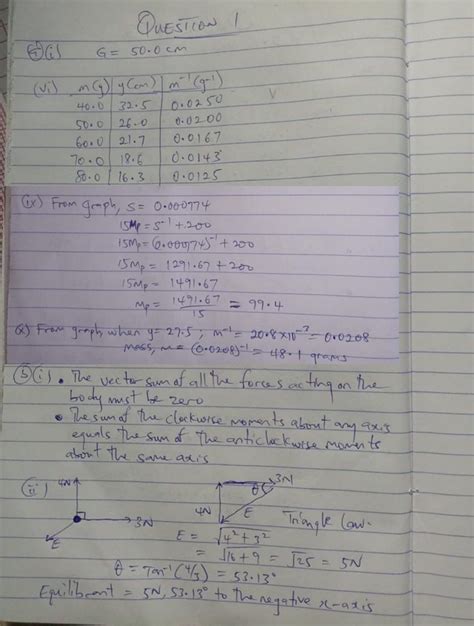 QUESTION 1
(i) G = 50.0 cm
(vi) m(g) y(cm) m⁻¹(g⁻¹)
40.0 32.5 0.0250
50.0 26.0 0.0200
60.0 21.7 0.0167
70.0 18.6 0.0143
80.0 16.3 0.0125
(ix) From graph, s = 0.000774
15Mp = s⁻¹ + 200
15Mp = (0.000774)⁻¹ + 200
15Mp = 1291.67 + 200
15Mp = 1491.67
Mp = 1491.67 / 15 = 99.4
(x) From graph when y = 27.5; m⁻¹ = 20.8 x 10⁻³ = 0.0208
mass, m = (0.0208)⁻¹ = 48.1 grams
(b)(i) • The vector sum of all the forces acting on the
body must be zero
• The sum of the clockwise moments about any axis
equals the sum of the anticlockwise moments
about the same axis
(ii) 4N 3N E
4N 3N θ E Triangle law.
E = √4² + 3²
= √16 + 9 = √25 = 5N
θ = Tan⁻¹(4/3) = 53.13°
Equilibrant = 5N, 53.13° to the negative x-axis